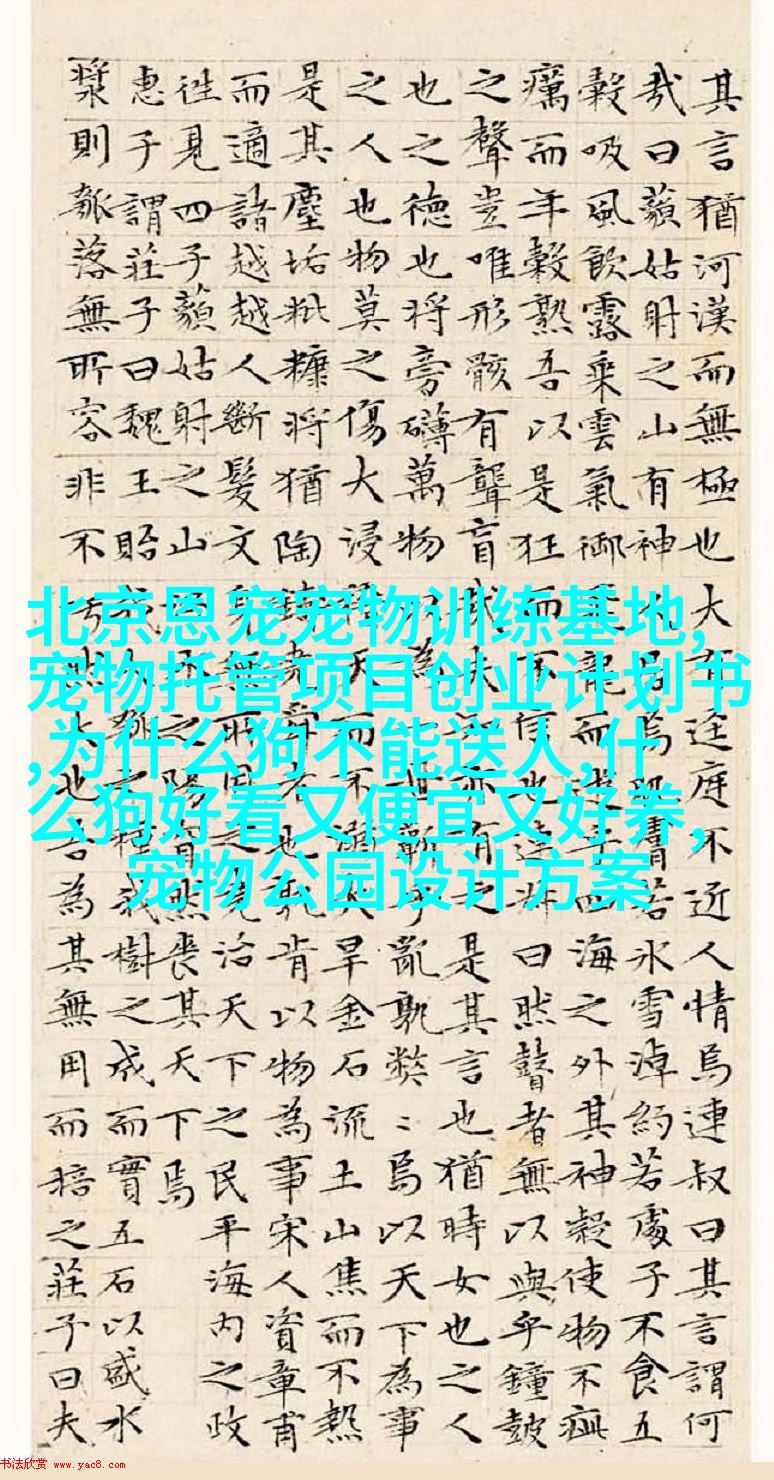 其言猶河漢而無極也大有逕庭不近人情焉連叔曰其言謂何
哉曰藐姑射之山有神人居焉肌膚若氷雪淖約若處子不食五
穀吸風飲露乗雲氣御飛龍而遊乎四海之外其神凝使物不疵
癘而年穀熟吾以是狂而不信也連叔曰然瞽者無以與乎鐘皷
之聲豈唯形骸有聾盲哉夫知亦有之是其言也猶時女也之人
也之德也将旁礴萬物以為一世蘄乎亂孰弊〻焉以天下為事
之人也物莫之傷大浸稽天而不溺大旱金石流土山焦而不熱
是其塵垢粃糠将猶陶鑄堯舜者也孰肯以物為事宋人資章甫
而適諸越越人斷髮文身無所用之堯治天下之民平海内之政
徃見四子藐姑射之山汾水之陽窅然喪其天下焉
惠子謂荘子曰魏王貽我大瓠之種我樹之成而實五石以盛水
漿則瓠落無所容非不呺然大也吾為其無用而掊之荘子曰夫
北京恩宠宠物训练基地,
宠物托管项目创业计划书
,为什么狗不能送人,什
么狗好看又便宜又好养,
宠物公园设计方案
书法欣赏 www.yac8.com